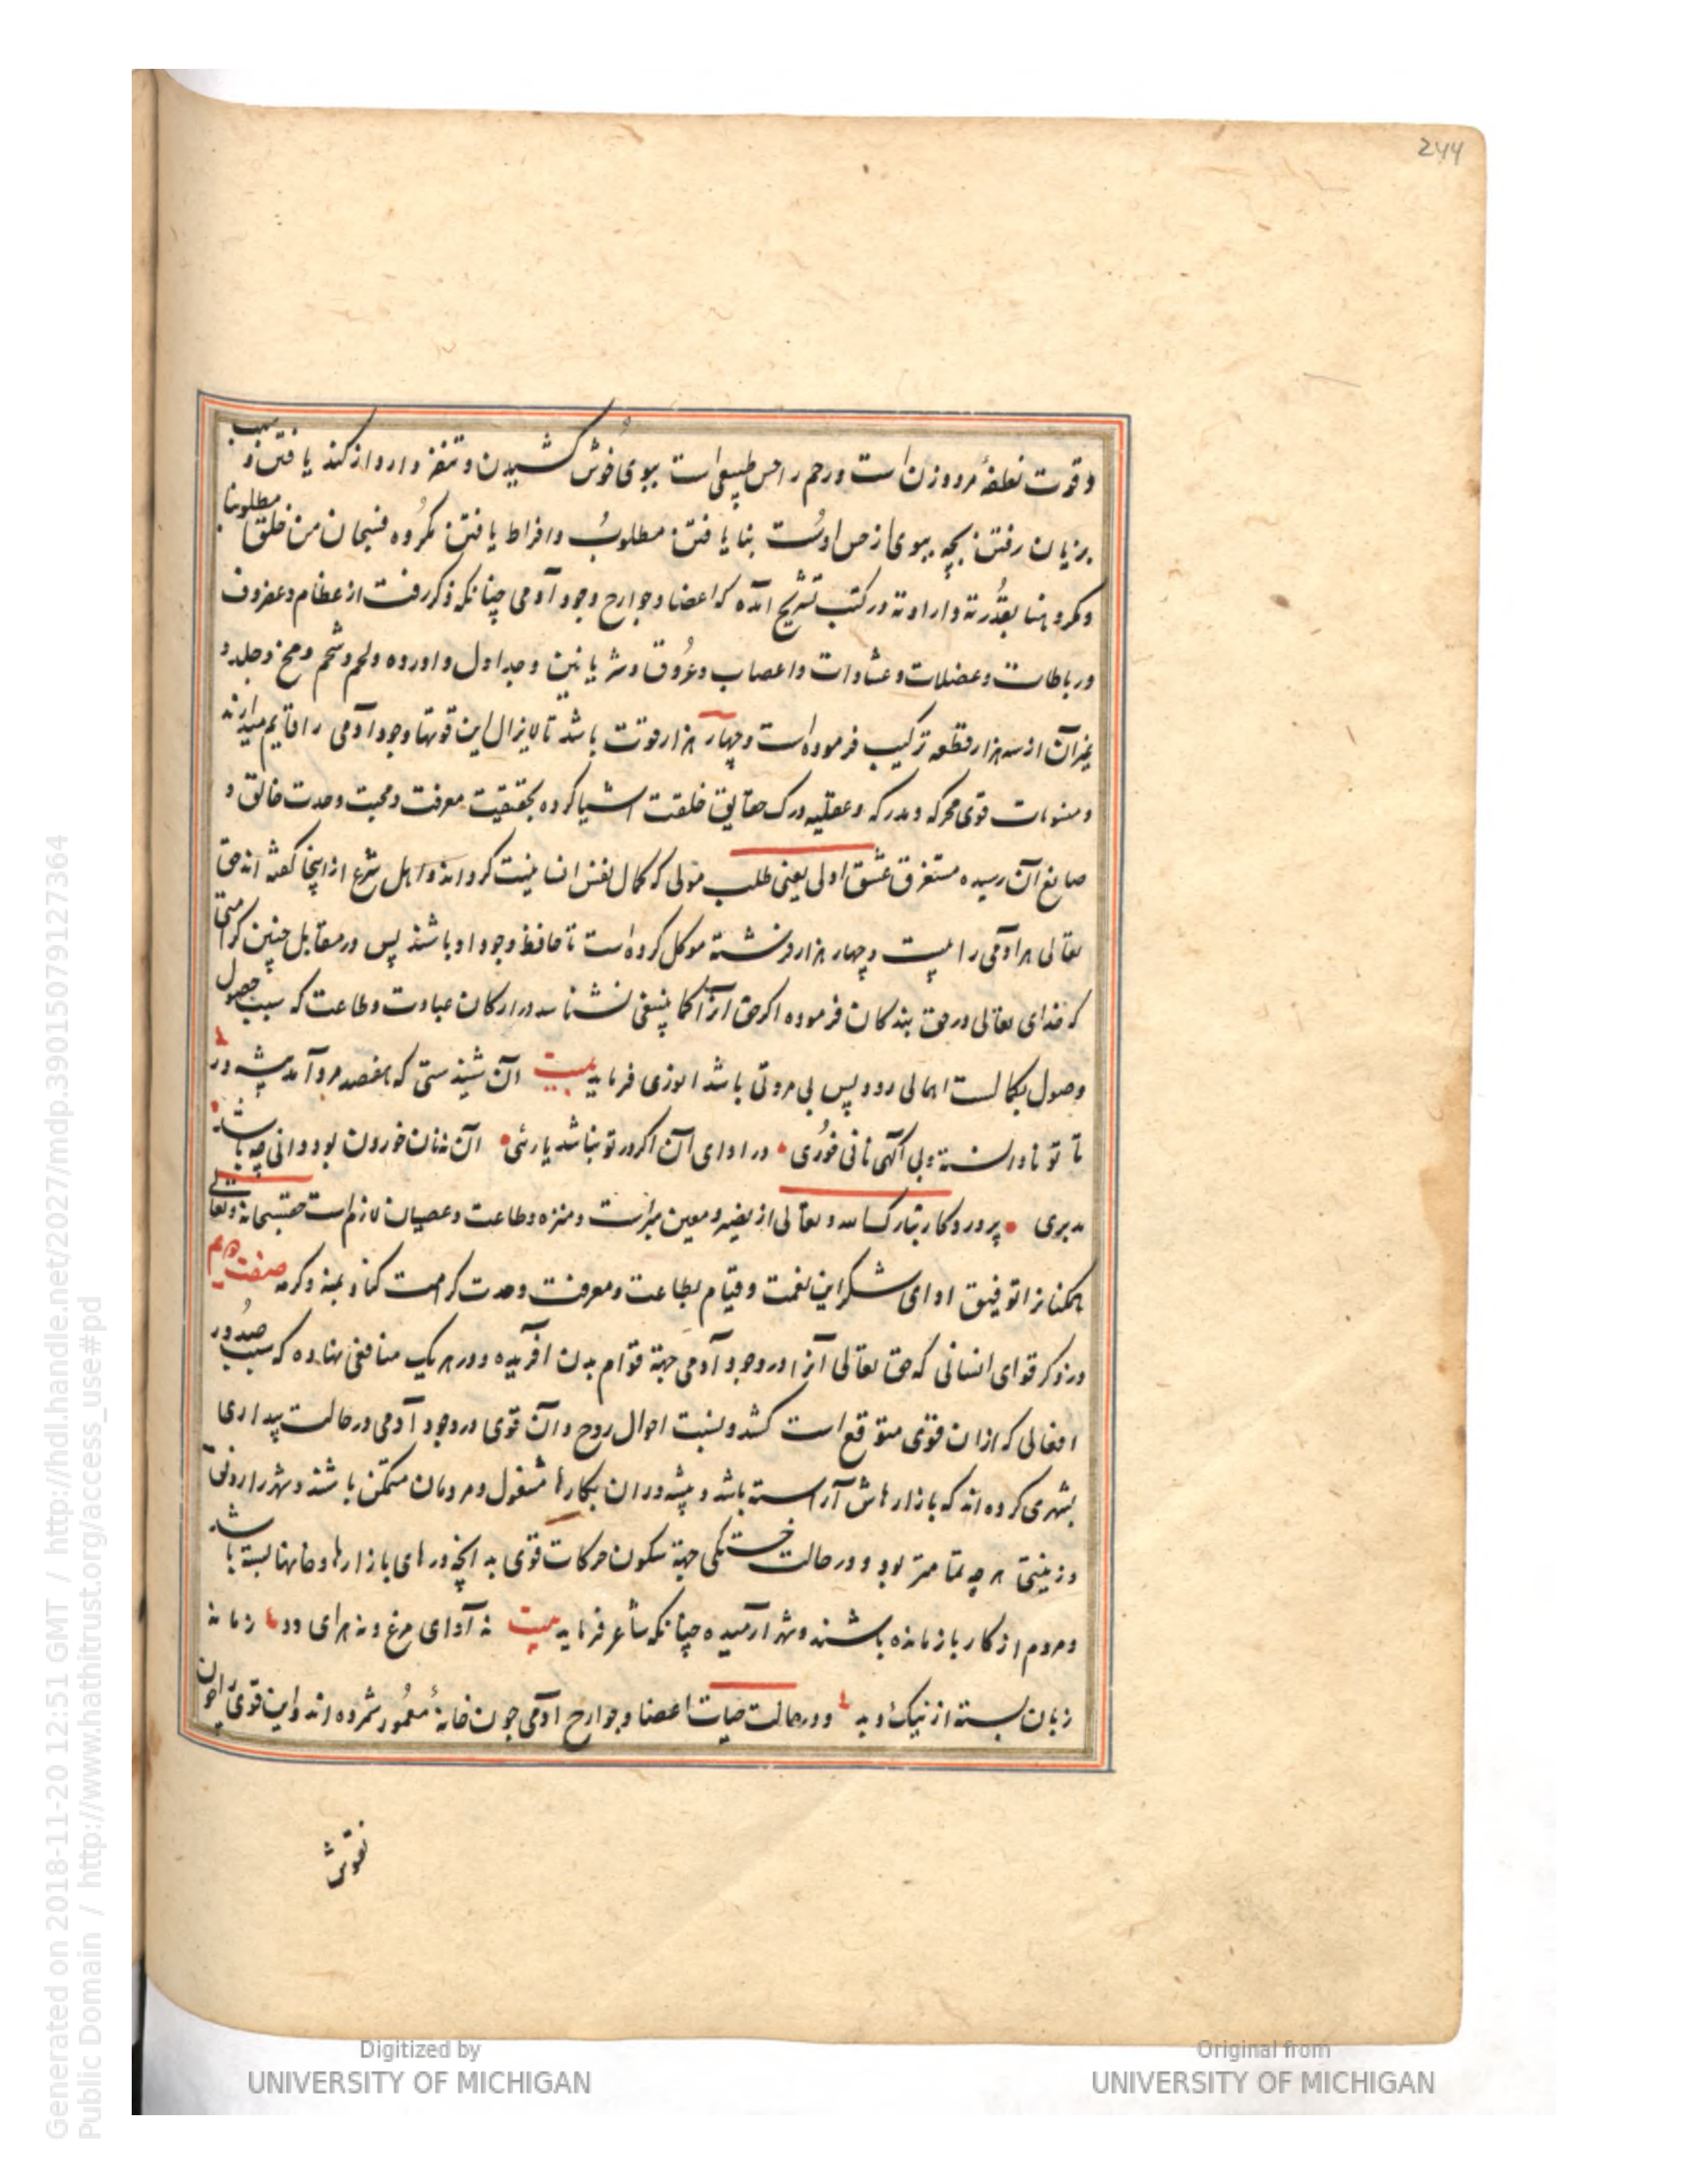 244
و قوت نطفهٔ مرد و زن است و رحم را حس طبیعی است ببوی خوش کشیدن و متنفر و ارواز کند یافتن و سبب
بر زیان رفتن بچه ببوی از حس اوست بنا یافتن مطلوب و افراط یافتن مکروه فسبحان من خلق مطلوبنا
و مکروهنا بقدرته و ارادته در کتب تشریح آمده که اعضا و جوارح وجود آدمی چنانکه ذکر رفت از عظام و غضروف
و رباطات و عضلات و غشاوات و اعصاب و عروق و شریانین و جداول و اورده و لحم و شحم و مخ و جلد و
غیر آن از سه هزار قطعه ترکیب فرموده است و چهار هزار قوت باشد تا لایزال این قوتها وجود آدمی را قایم میدارند
و قوی محرکه و مدرکه و عقلیه درک حقایق خلقت اشیا کرده بحقیقت معرفت و محبت وحدت خالق و
صانع آن رسیده مستغرق عشق اولی یعنی طلب مولی که کمال نفس انسانیت کرداند و اهل شرع از اینجا گفته اند حق
تعالی هر آدمی را بیست و چهار هزار فرشته موکل کرده است تا حافظ وجود او باشند پس در مقابل چنین کرامتی
که خدای تعالی در حق بندگان فرموده اگر حق آنرا کما ینبغی نشناسد در ارکان عبادت و طاعت که سبب حصول
وصول بکمالست اهمالی رود پس بی مروتی باشد انوری فرماید بیت آن شنیدستی که هفصد مرد آمد پیشه ور
تا تو نادانسته و بی آگهی نانی خوری در ادای آن اگر در تو نباشد یارئی آن نه نان خوردن بود دانی چه باشد
مدبری پروردگار تبارک الله و تعالی از نصیر و معین مبراست و منزه و طاعت و عصیان لازم است حق سبحانه و تعالی
همکنانرا توفیق ادای شکر این نعمت و قیام بطاعت و معرفت وحدت کرامت کناد بمنه و کرمه صفت
در ذکر قوای انسانی که حق تعالی آنرا در وجود آدمی جهة قوام بدن آفریده و در هر یک منافعی نهاده که سبب صدور
افعالی که از ان قوی متوقع است کشد و نسبت احوال روح و آن قوی در وجود آدمی در حالت بیداری
بشهری کرده اند که بازارهاش آراسته باشد و پیشه وران بکارها مشغول و مردمان متمکن باشند و شهر را رونقی
و زینتی هر چه تمامتر بود و در حالت خستگی جهة سکون حرکات قوی به آنچه درهای بازارها و خانها بسته باشد
و مردم از کار بازمانده باشند و شهر آرمیده چنانکه شاعر فرماید بیت نه آوای مرغ و نه هرای دد زمانه
زبان بسته از نیک و بد و در حالت حیات اعضا و جوارح آدمی چون خانهٔ معمور شمرده اند و این قوی را چون
نقوش
Generated on 2018-11-20 12:51 GMT / http://hdl.handle.net/2027/mdp.39015079127364
Public Domain / http://www.hathitrust.org/access_use#pd
Digitized by
UNIVERSITY OF MICHIGAN
Original from
UNIVERSITY OF MICHIGAN